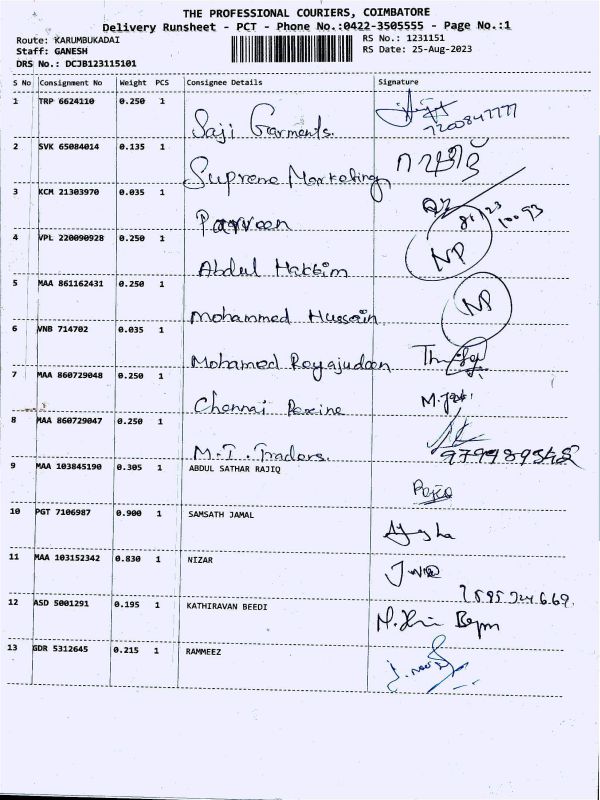 THE PROFESSIONAL COURIERS, COIMBATORE
Delivery Runsheet - PCT - Phone No.:0422-3505555 - Page No.:1
Route: KARUMBUKADAI RS No.: 1231151
Staff: GANESH RS Date: 25-Aug-2023
DRS No.: DCJB123115101
S No Consignment No Weight PCS Consignee Details Signature
1 TRP 6624110 0.250 1 Saji Garments.
7200847777
2 SVK 65084014 0.135 1 Supreme Marketing
3 KCM 21303970 0.035 1 Parveen
4 VPL 220090928 0.250 1 Abdul Hakkim NP
5 MAA 861162431 0.250 1 Mohammed Hussain NP
6 VNB 714702 0.035 1 Mohamed Reyajudeen
7 MAA 860729048 0.250 1 Chennai
8 MAA 860729047 0.250 1 M.I. Traders.
9 MAA 103845190 0.305 1 ABDUL SATHAR RAJIQ
10 PGT 7106987 0.900 1 SAMSATH JAMAL Aysha
11 MAA 103152342 0.830 1 NIZAR
12 ASD 5001291 0.195 1 KATHIRAVAN BEEDI
13 GDR 5312645 0.215 1 RAMMEEZ